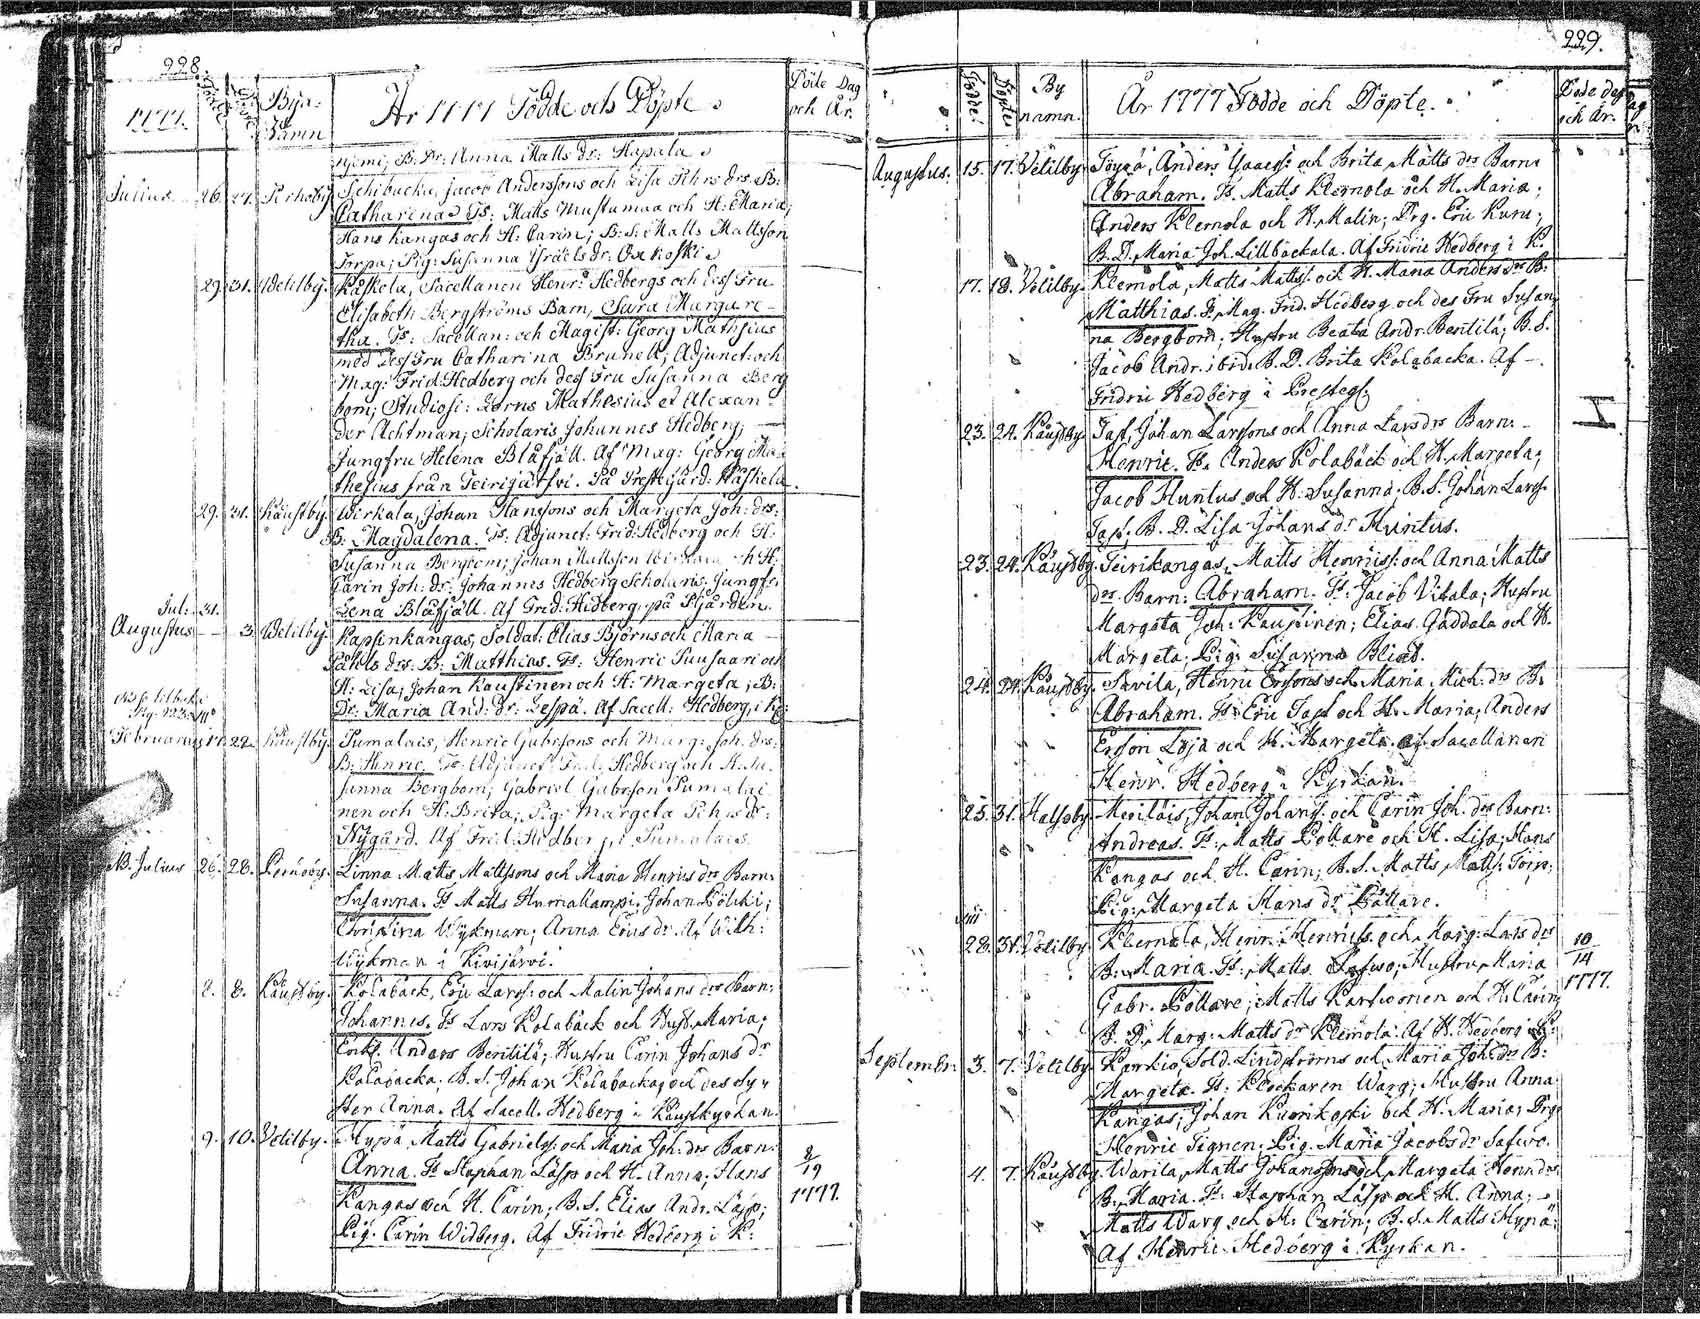 228.
1777.
Födde
Döpte
Bya-
Namn
År 1777 Födde och Döpte
Döde Dag
och År.
Anna Matts dr: Hypala
Julius 26. 27. Schibacka, Jacob Anderssons och Lisa Pehrs drs. B:
Catharina Ts: Matts Mustamaa och H: Maria;
Hans Kangas och H: Carin; B: S: Matts Mattsson
Torpa; Pig: Susanna Israels dr:
29. 31. Wetilby. Kåskela, Sacellanen Henr: Hedbergs och dess Fru
Elisabeth Bergströms Barn, Sara Margare-
tha. Ts: Sacellan: och Magist: Georg Mathesius
med dess Fru Catharina Brunell; Adjunct: och
Mag: Frid: Hedberg och dess Fru Susanna Berg
bom; Studiosi: Mathesius et Alexan-
der Achtman; Scholaris Johannes Hedberg;
Jungfru Helena Blåfjäll. Af Mag: Georg Ma-
thesius från På Prestegård:
29. 31. Kaustby. Wirkala, Johan Hanssons och Margeta Joh: drs:
B: Magdalena. Ts: Adjunct: Frid: Hedberg och H:
Susanna Bergbom; Johan Mattsson H:
Carin Joh: dr: Johannes Hedberg Scholaris: Jungfr:
Lena Blåfjäll. Af Frid: Hedberg, på
Jul: 31.
Augustus 3. Wetilby. Kapsenkangas, Soldat: Elias Björns och Maria
drs: B: Matthias. Ts: Henric Puusaari och
H: Lisa; Johan Kaustinen och H: Margeta; B:
Dr: Maria And: dr: Af Sacell: Hedberg, i
Februarius 17. 22. Kaustby. Pumalais, Henric Gabrssons och Marg: Joh: drs:
B: Henric. Ts: Adjunct: Frid: Hedberg och H: Su-
sanna Bergbom; Gabriel Gabrsson Pumalai
nen och H: Brita; Pig: Margeta Pehrs dr:
Nygård. Af Frid: Hedberg Pumalais.
NB. Julius 26. 28. Linna Matts Mattssons och Maria Henrics drs Barn:
Susanna. Ts Matts Humallampi; Johan
Christina Wykman; Anna Erics dr. Af Wilh:
Wykman i Kivijärvi.
2. 8. Kaustby. Kolaback, Eric Larss: och Malin Johans drs Barn:
Johannes. Ts Lars Kolaback och Hust. Maria;
Enkl. Anders Bentilä; Hustru Carin Johans dr
Kolabacka; B. S. Johan Kolabacka, och des Sy-
ster Anna. Af Sacell. Hedberg i Kaustkyrkan.
9. 10. Vetilby. Hypä, Matts Gabrielss: och Maria Joh: drs Barn:
Anna. Ts Staphan Läspo och H. Anna; Hans
Kangas och H. Carin; B. S. Elias Andr. Läspo;
Pig. Carin Widberg. Af Fridric Hedberg i K:
8
19
1777.
229.
Födde
Döpte
By
namn.
År 1777 Födde och Döpte.
Döde dag
och År.
Augustus. 15. 17. Vetilby. Töyrä, Anders Isaacss: och Brita Matts drs Barn:
Abraham. Ts. Matts Klemola och H. Maria;
Anders Klemola och H. Malin; Drg. Eric Kuru;
B. D. Maria Joh. Lillbackala. Af Fridric Hedberg i K.
17. 18. Vetilby. Klemola, Matts Matts: och H. Maria Anders drs B:
Matthias. Ts. Mag. Frid. Hedberg och des Fru Susan-
na Bergbom; Hustru Beata Andr. Bentilä; B. S.
Jacob Andr. ibid: B. D. Brita Kolabacka. Af
Fridric Hedberg i Presteg.
23. 24. Kaustby. Tast, Johan Larssons och Anna Lars drs Barn:
Henric. Ts. Anders Kolabäck och H. Margeta;
Jacob Huntus och H: Susanna; B. S. Johan Larss.
Tast; B. D. Lisa Johans dr Huntus.
23. 24. Kaustby. Teirikangas, Matts Henricss: och Anna Matts
drs Barn: Abraham. Ts: Jacob Vitala; Hustru
Margeta Joh: Kaustinen; Elias Gäddala och H.
Margeta; Pig: Susanna Blind.
24. Kaustby. Savila, Henric Erssons och Maria Mich: drs B:
Abraham. Ts: Eric Tast och H. Maria; Anders
Ersson och H. Margeta; af Sacellanen
Henr: Hedberg i Kyrkan.
25. 31. Halsoby. Meriläis, Johan Johanss: och Carin Joh. drs Barn:
Andreas. Ts: Matts Pottare och H. Lisa; Hans
Kangas och H. Carin; B. S. Matts Matts. Torp;
Pig: Margeta Hans dr Pottare.
28. 31. Vetilby. Klemola, Henr: Henricss och Marg: Lars drs
B: Maria. Ts: Matts Hustru Maria
Gabr. Pottare; Matts Karhuonen och H. Carin;
B. D. Marg: Matts dr Klemola. Af H. Hedberg i K:
10
14
1777.
September. 3. 7. Vetilby. Korkio, Sold. Lindströms och Maria Joh: drs B:
Margeta. Ts: Klockaren Warg; Hustru Anna
Kangas; Johan och H. Maria; Drg:
Henric Tignen; Pig. Maria Jacobs dr
4. 7. Kaustby. Warila, Matts Johanssons och Margeta Henr drs
B: Maria. Ts. Staphan Läspo och H. Anna;
Matts Warg och H: Carin; B. S. Matts Hypä;
Af Henric Hedberg i Kyrkan.